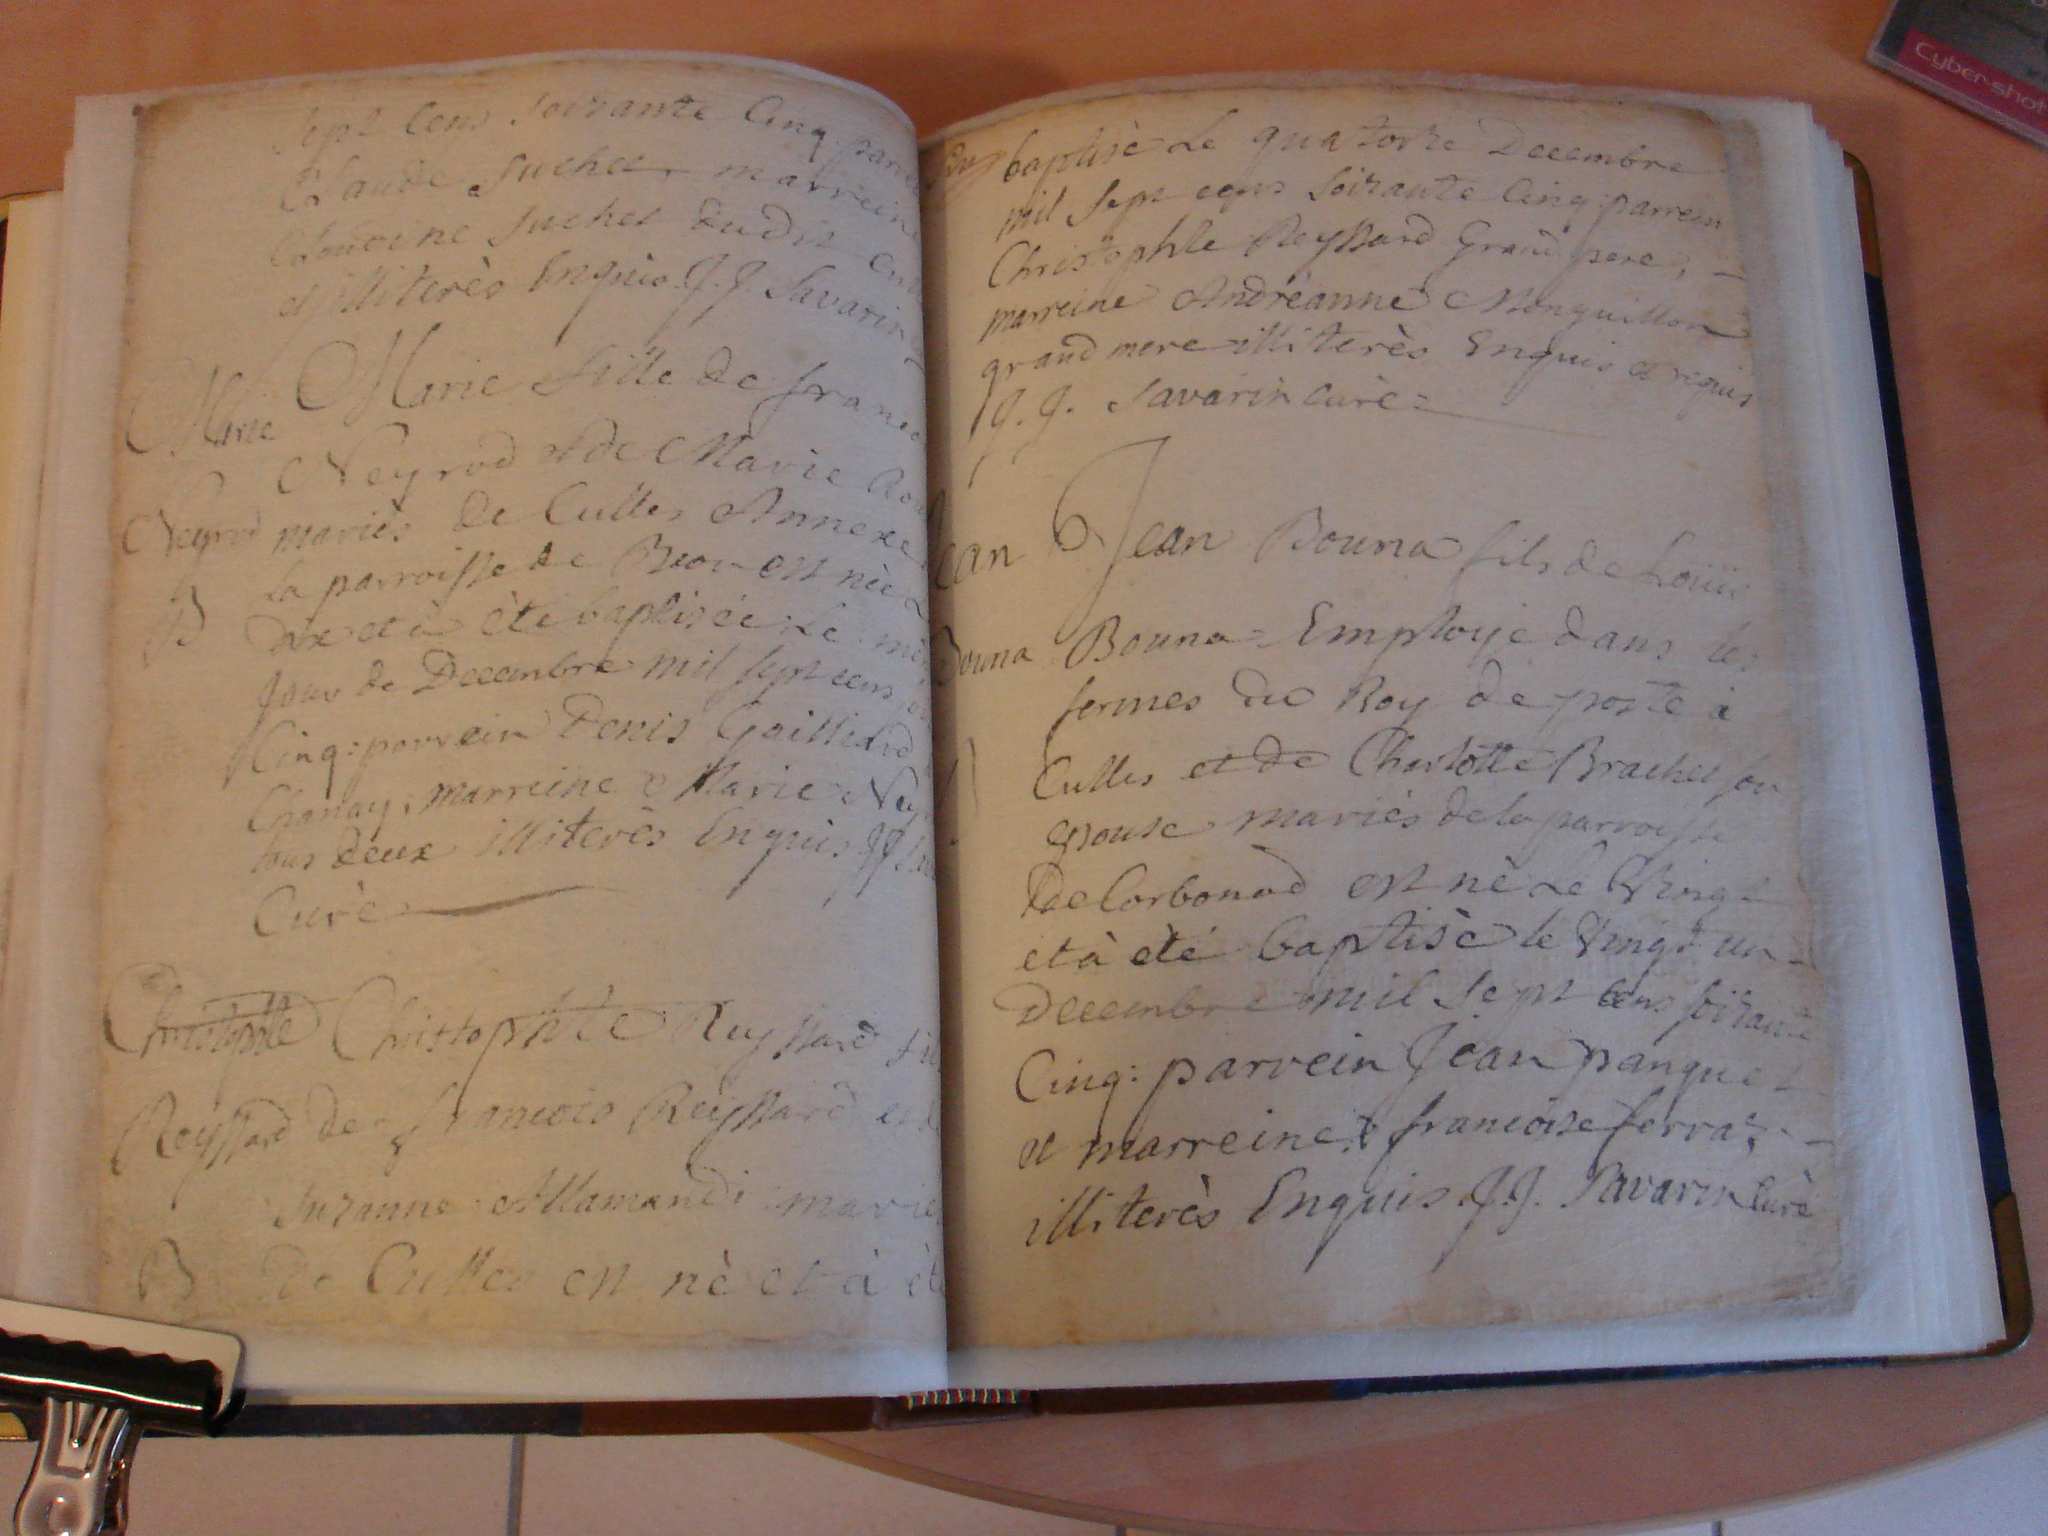 sept cens soixante Cinq parrein
Claude Suchet marreine
Suchet dudit
et illiterès Enquis J. J. Savarin
Marie
Marie fille de
Neyrod et de Marie
Neyrod
mariés de Culles Annexe
la parroisse de est née
B
dix et à été baptisée Le
Jour de Decembre mil sept cens
Cinq: parrein Denis Gailliard
Chanay, marreine Marie
tous deux illiterès Enquis JJ
Curè
Christophle
Christophle Reyssard
Reyssard
de francois Reyssard
Suzanne Allamandi
B
de Culles est nè et à
baptisè Le quatorze Decembre
mil sept cens soixante Cinq: parrein
Christophle Reyssard Grand pere,
marreine Andréanne Monguillon
grand mere illiterès Enquis et requis
J. J. Savarin curè
Jean Bouna fils de Loüis
Bouna
Bouna Employé dans les
fermes du Roy de poste à
Culles et de Charlotte Brachet son
Epouse mariés de la parroisse
de Corbonod est nè Le Vingt
et à été baptisè le Vingt un
Decembre mil sept cens soixante
Cinq: parrein Jean panguet
et marreine francoise ferraz
illiterès Enquis J.J. Savarin Curè
Cyber-shot